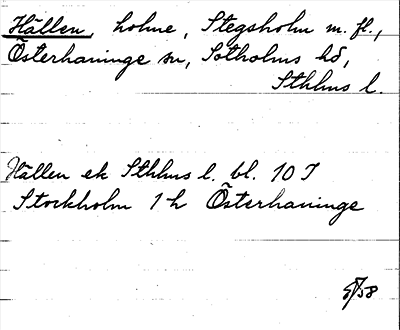 Hällen, holme, Stegsholm m. fl.,
Österhaninge sn, Sotholms hd,
Sthlms l.
Hällen ek Sthlms l. bl. 10 I
Stockholm 1 h Österhaninge
58